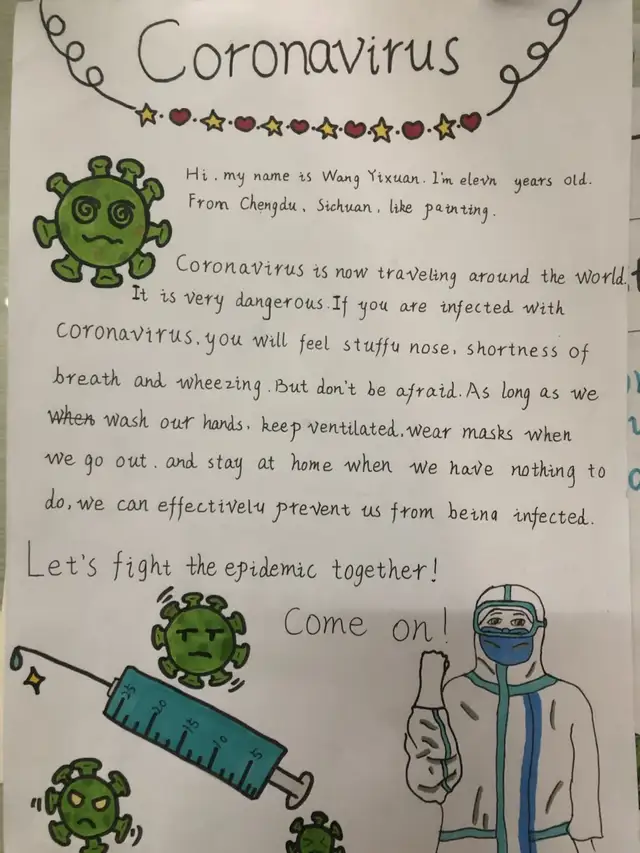 Coronavirus
Hi, my name is Wang Yixuan. I'm elevn years old.
From Chengdu, Sichuan, like painting.
Coronavirus is now traveling around the world,
It is very dangerous. If you are infected with
coronavirus, you will feel stuffu nose, shortness of
breath and wheezing. But don't be afraid. As long as we
when wash our hands, keep ventilated, wear masks when
we go out, and stay at home when we have nothing to
do, we can effectivelu prevent us from being infected.
Let's fight the epidemic together!
Come on!
25 20 15 10 5